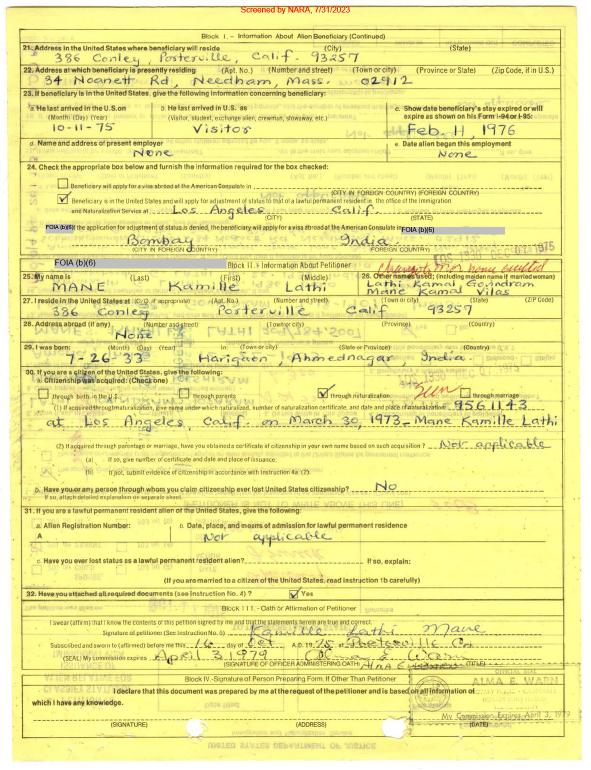 Screened by NARA, 7/31/2023
Block I. - Information About Alien Beneficiary (Continued)
21. Address in the United States where beneficiary will reside (City) (State)
386 Conley, Posterville, Calif. 93257
22. Address at which beneficiary is presently residing (Apt. No.) (Number and street) (Town or city) (Province or State) (Zip Code, if in U.S.)
34 Noanett Rd, Needham, Mass. 02912
23. If beneficiary is in the United States, give the following information concerning beneficiary:
a. He last arrived in the U.S. on b. He last arrived in U.S. as c. Show date beneficiary's stay expired or will
(Month) (Day) (Year) (Visitor, student, exchange alien, crewman, stowaway, etc.) expire as shown on his Form I-94 or I-95:
10-11-75 Visitor Feb. 11, 1976
d. Name and address of present employer e. Date alien began this employment
None None
24. Check the appropriate box below and furnish the information required for the box checked:
Beneficiary will apply for a visa abroad at the American Consulate in
(CITY IN FOREIGN COUNTRY) (FOREIGN COUNTRY)
Beneficiary is in the United States and will apply for adjustment of status to that of a lawful permanent resident in the office of the Immigration
and Naturalization Service at Los Angeles Calif.
(CITY) (STATE)
FOIA (b)(6) the application for adjustment of status is denied, the beneficiary will apply for a visa abroad at the American Consulate in FOIA (b)(6)
Bombay India
(CITY IN FOREIGN COUNTRY) (FOREIGN COUNTRY)
FOIA (b)(6) Block II. - Information About Petitioner
25. My name is (Last) (First) (Middle) 26. Other names used; (including maiden name if married woman)
MANE Kamille Lathi Lathi Kamal Govindram
Mane Kamal Vilas
27. I reside in the United States at (C/O, if appropriate) (Apt. No.) (Number and street) (Town or city) (State) (ZIP Code)
386 Conley Posterville Calif 93257
28. Address abroad (if any) (Number and street) (Town or city) (Province) (Country)
None
29. I was born: (Month) (Day) (Year) In: (Town or city) (State or Province) (Country)
7-26-33 Harigaon, Ahmednagar India
30. If you are a citizen of the United States, give the following:
a. Citizenship was acquired: (Check one)
through birth in the U.S. through parents through naturalization through marriage
(1) If acquired through naturalization, give name under which naturalized, number of naturalization certificate, and date and place of naturalization: 9561143
at Los Angeles, Calif. on March 30, 1973 - Mane Kamille Lathi
(2) If acquired through parentage or marriage, have you obtained a certificate of citizenship in your own name based on such acquisition? Not applicable
(a) If so, give number of certificate and date and place of issuance:
(b) If not, submit evidence of citizenship in accordance with Instruction 4a (2).
b. Have you or any person through whom you claim citizenship ever lost United States citizenship? No
If so, attach detailed explanation on separate sheet.
31. If you are a lawful permanent resident alien of the United States, give the following:
a. Alien Registration Number: b. Date, place, and means of admission for lawful permanent residence
A Not applicable
c. Have you ever lost status as a lawful permanent resident alien? If so, explain:
(If you are married to a citizen of the United States, read instruction 1b carefully)
32. Have you attached all required documents (see Instruction No. 4)? Yes
Block III. - Oath or Affirmation of Petitioner
I swear (affirm) that I know the contents of this petition signed by me and that the statements herein are true and correct.
Signature of petitioner (See Instruction No. 5) Kamille Lathi Mane
Subscribed and sworn to (affirmed) before me this 16 day of Oct. A.D. 19 75 at Porterville Ca.
(SEAL) My commission expires April 3 1979
(SIGNATURE OF OFFICER ADMINISTERING OATH) (TITLE)
Block IV. - Signature of Person Preparing Form, If Other Than Petitioner
I declare that this document was prepared by me at the request of the petitioner and is based on all information of
which I have any knowledge.
OFFICIAL SEAL
ALMA E. WARN
My Commission Expires April 3, 1979
(SIGNATURE) (ADDRESS) (DATE)
UNITED STATES DEPARTMENT OF JUSTICE